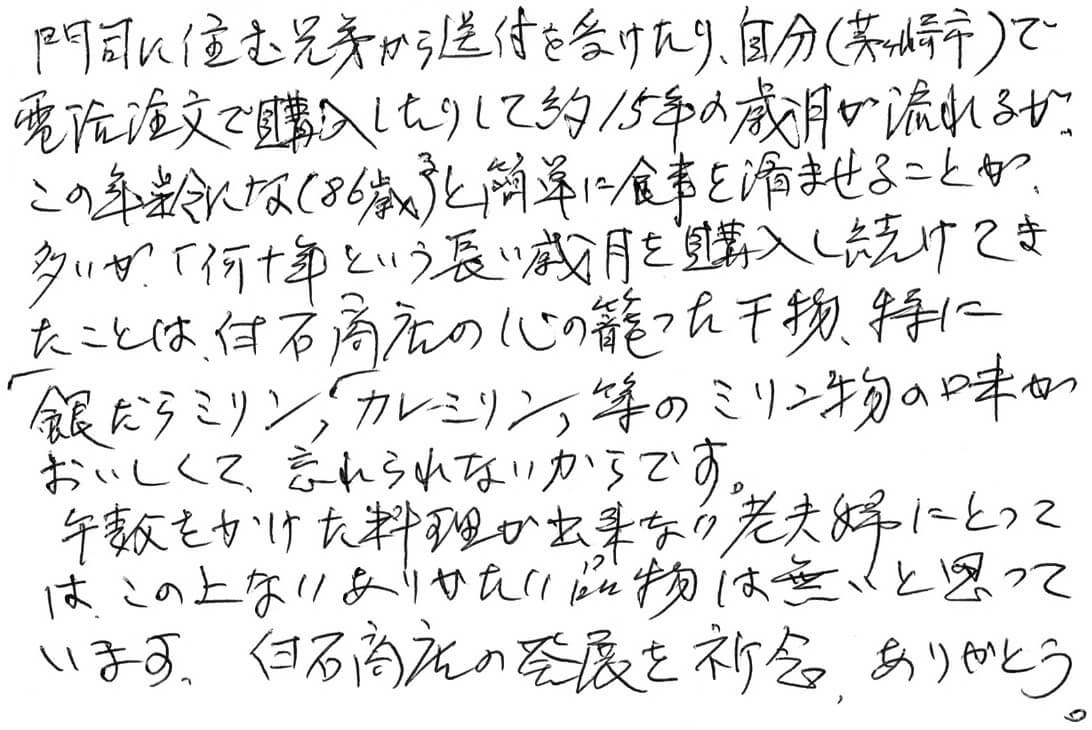 門司に住む兄弟から送付を受けたり、自分(茅ヶ崎市)で
電話注文で購入したりして約15年の歳月が流れるが、
この年齢になる(86歳)と簡単に食事を済ませることが、
多いが、「何十年という長い歳月を購入し続けてき
たことは、付石商店の心の籠った干物、特に
「銀だらミリン」「カレーミリン」等のミリン物の味が
おいしくて、忘れられないからです。
手数をかけた料理が出来ない老夫婦にとって
は、この上ないありがたい品物は無いと思って
います、付石商店の発展を祈念、ありがとう。